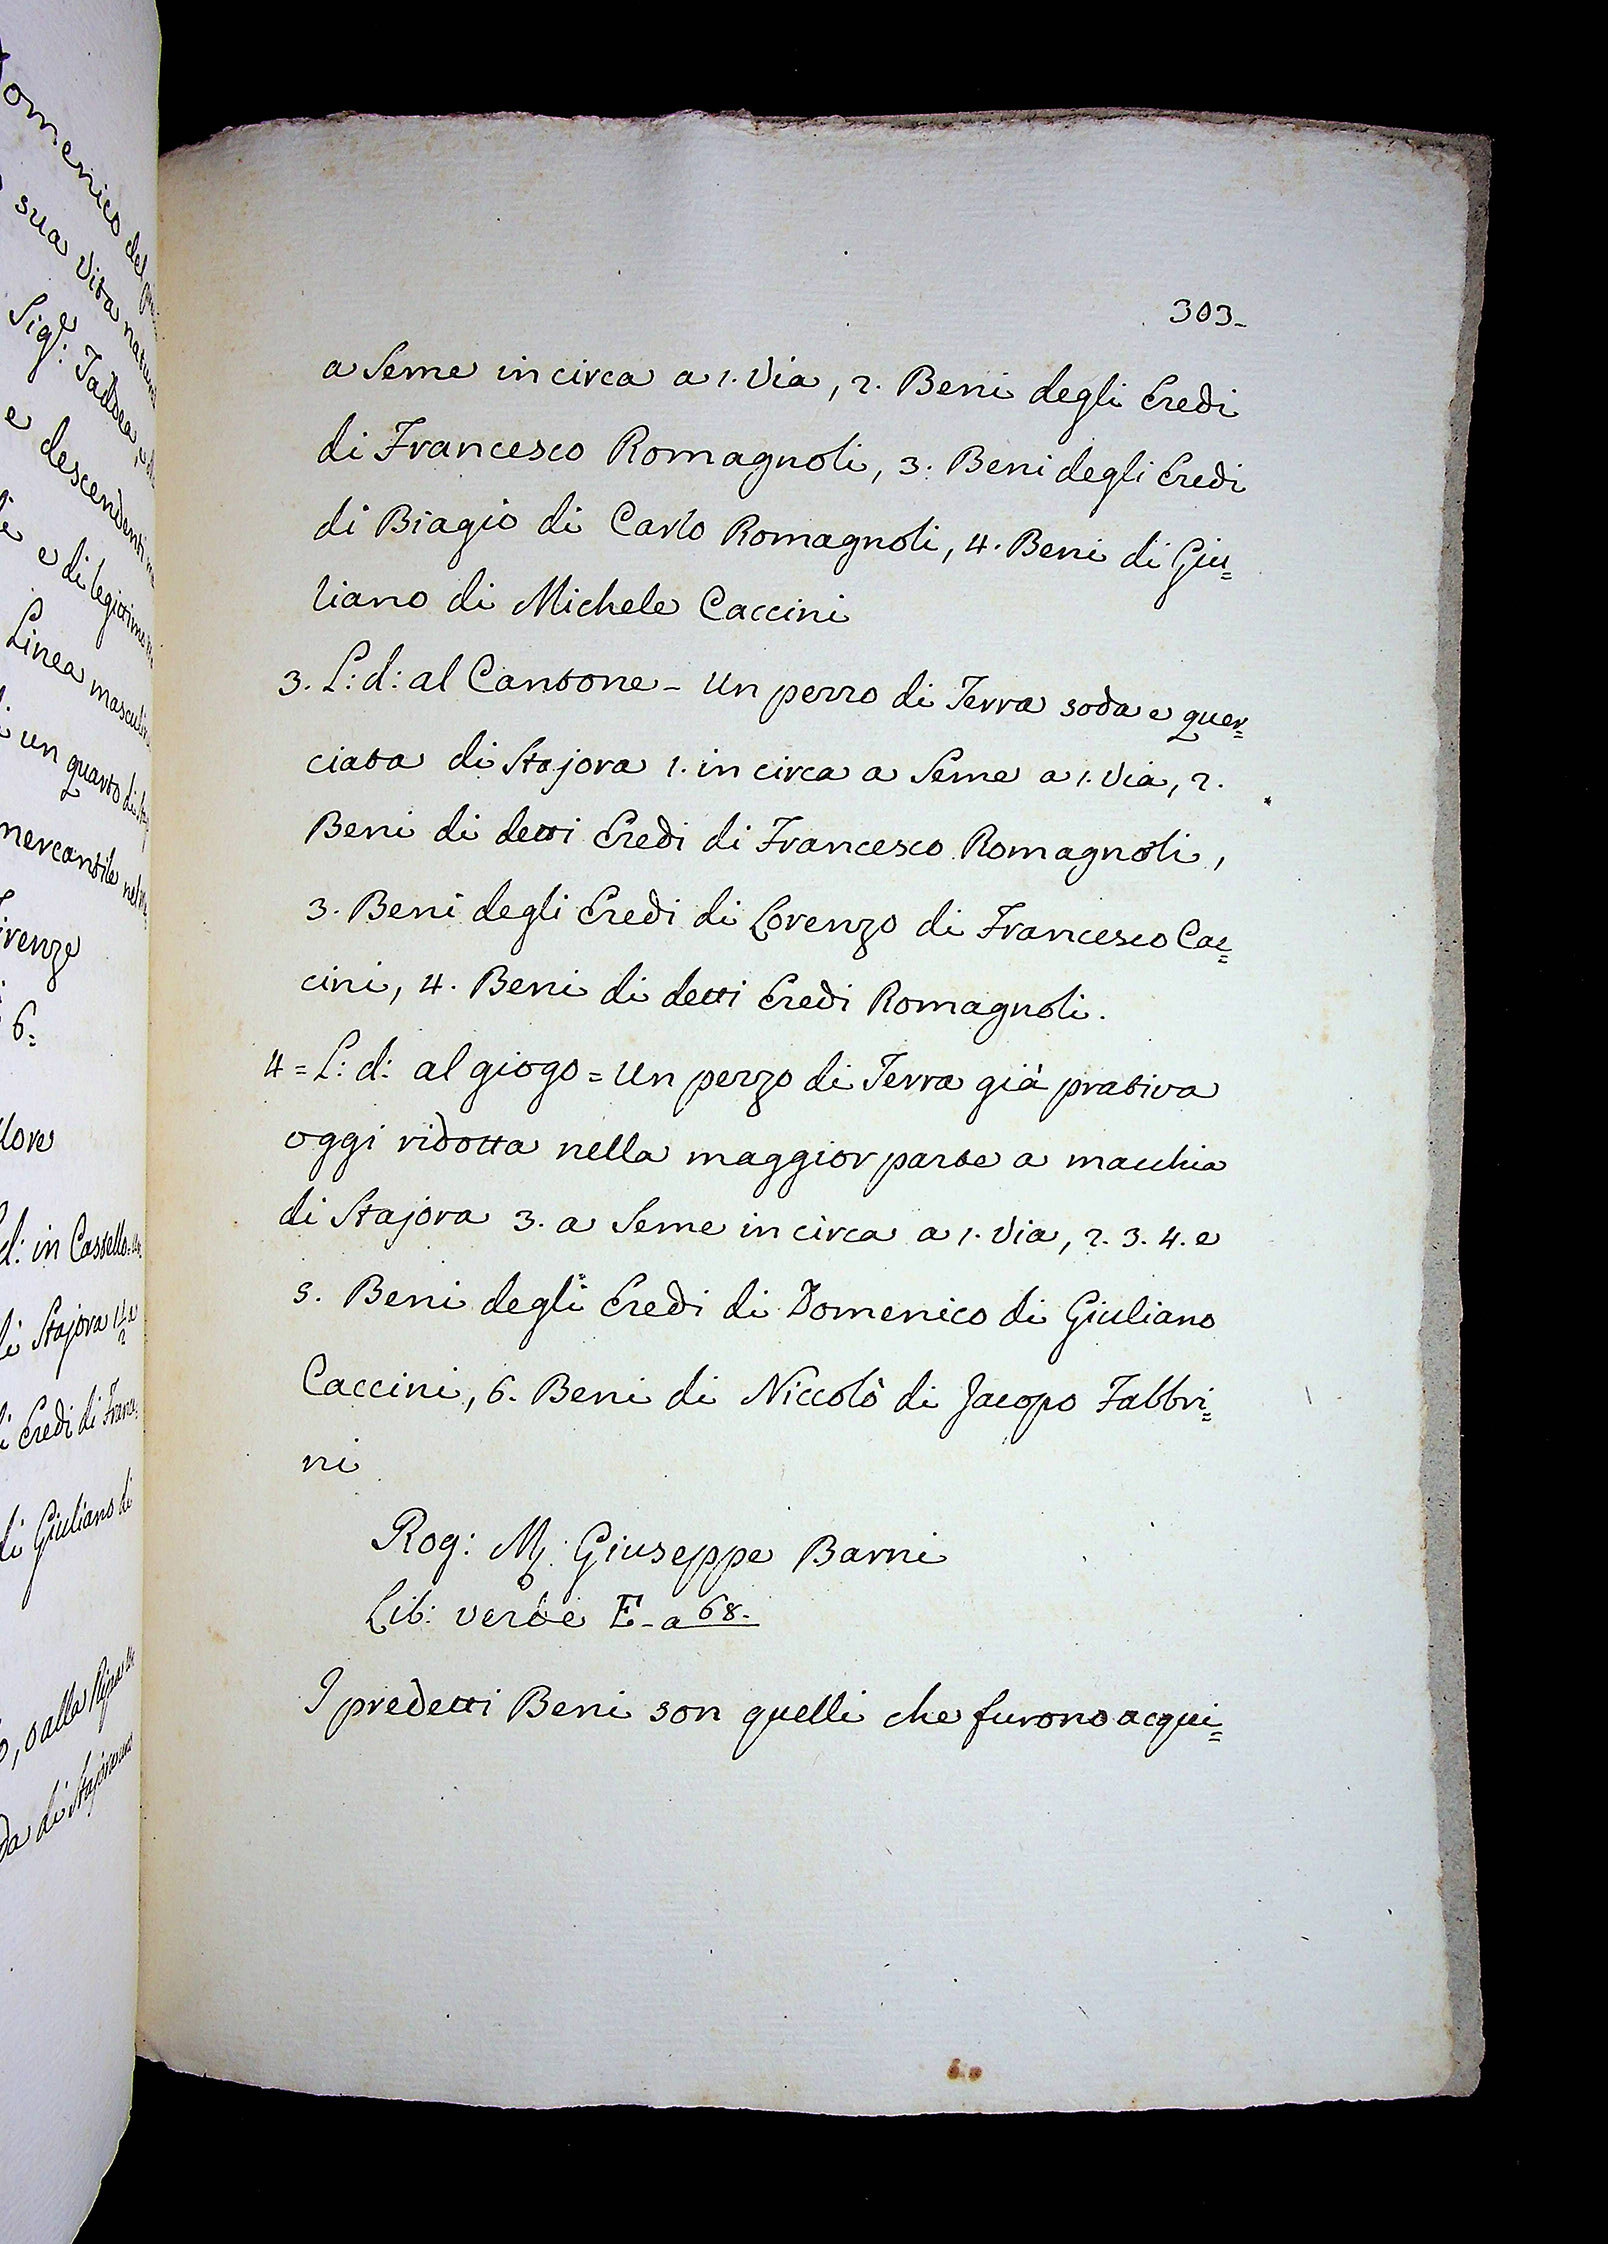 omenico del
sua Vita natural
Sig.e: Taddea,
e descendenti
e di legittime
Linea masculin
un quarto di
mercantile nel
irenze
6=
lore
d: in Castello
di Stajora 1 1/2 a
i Eredi di Franc=
di Giuliano di
o, o alla Ripa
da di Stajora
303-
a Seme in circa a 1. Via, 2. Beni degli Eredi
di Francesco Romagnoli, 3. Beni degli Eredi
di Biagio di Carlo Romagnoli, 4. Beni di Giu=
liano di Michele Caccini
3. L: d: al Cantone - Un pezzo di Terra soda e quer=
ciata di Stajora 1. in circa a Seme a 1. Via, 2.
Beni di detti Eredi di Francesco Romagnoli,
3. Beni degli Eredi di Lorenzo di Francesco Cac=
cini, 4. Beni di detti Eredi Romagnoli.
4 = L: d: al giogo = Un pezzo di Terra già prativa
oggi ridotta nella maggior parte a macchia
di Stajora 3. a Seme in circa a 1. Via, 2. 3. 4. e
5. Beni degli Eredi di Domenico di Giuliano
Caccini, 6. Beni di Niccolò di Jacopo Fabbri=
ni
Rog: M: Giuseppe Barni
Lib: verde E - a 68.
I predetti Beni son quelli che furono acqui=